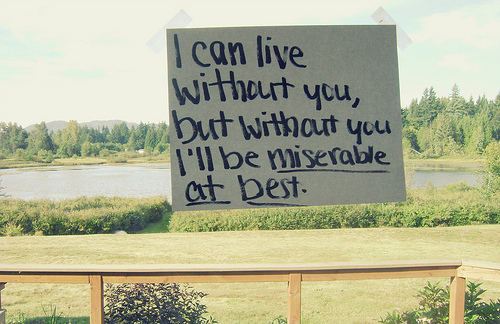 I can live
without you,
but without you
I'll be miserable
at best.